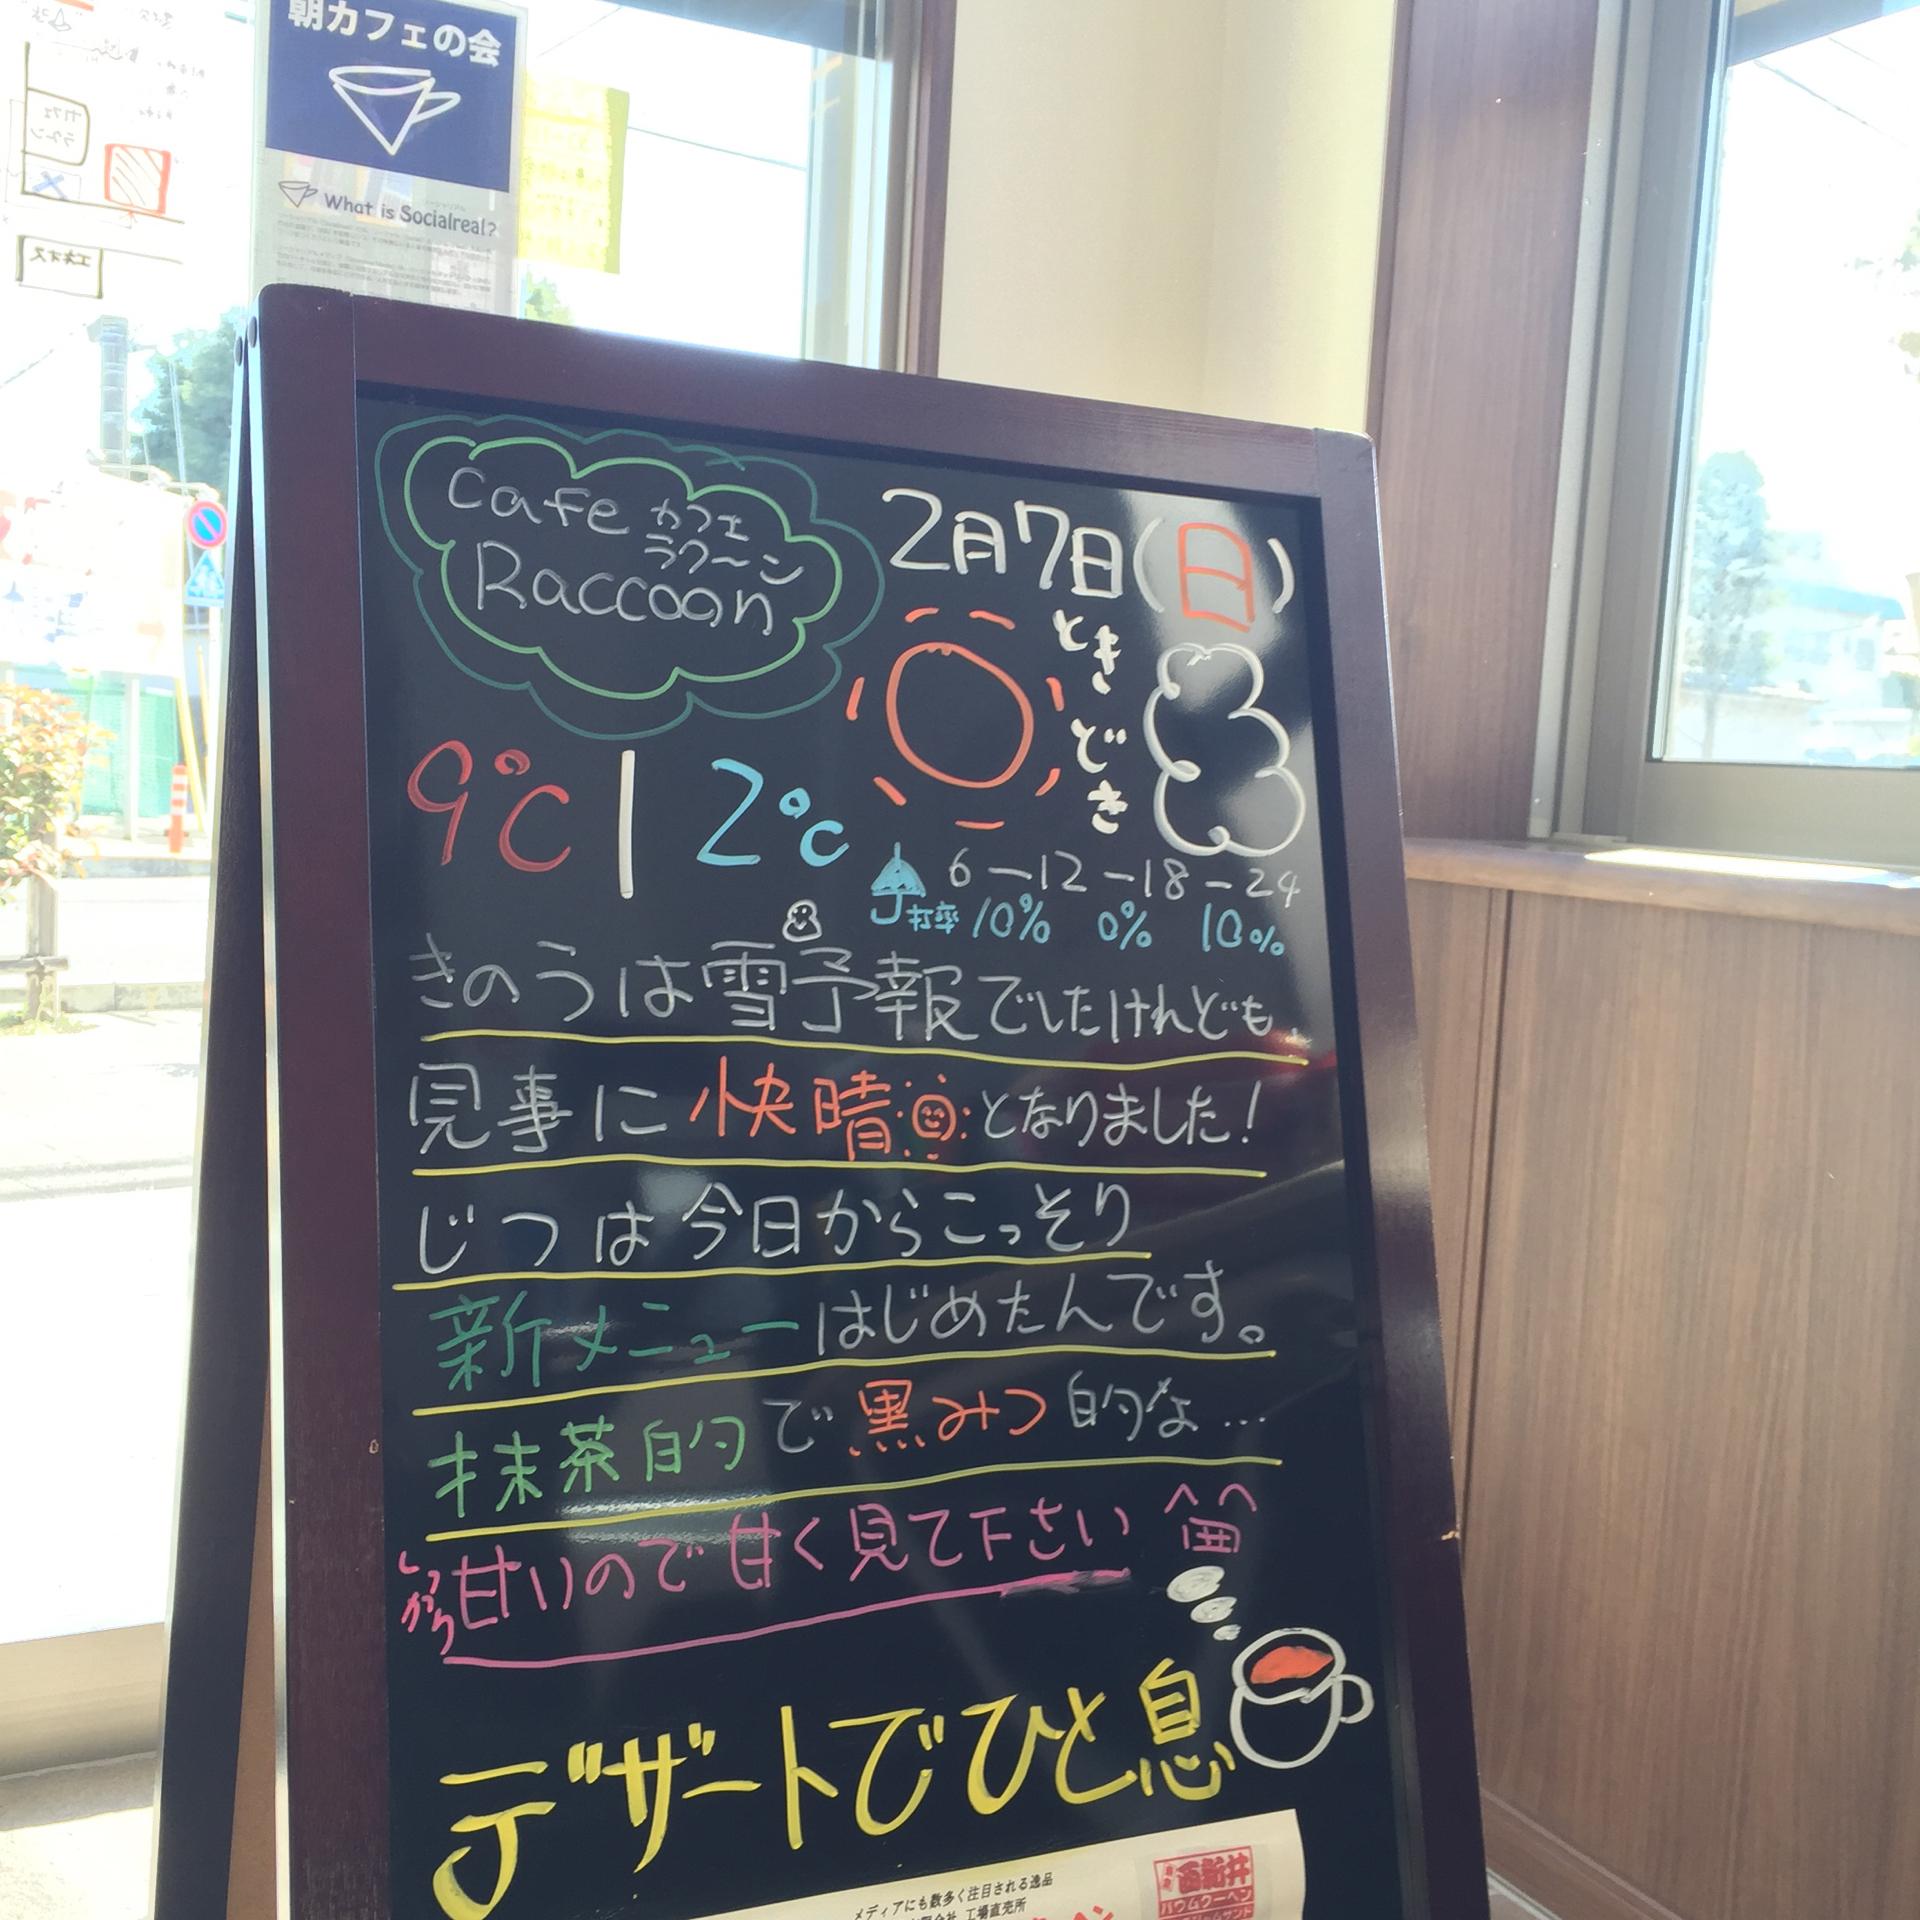 朝カフェの会
What is Socialreal?
カフェ
エネオス
Cafe カフェ
ラクーン
Raccoon
2月7日(日)
ときどき
9℃ | 2℃
6-12-18-24
打率 10% 0% 10%
きのうは雪予報でしたけれども、
見事に快晴となりました!
じつは今日からこっそり
新メニューはじめたんです。
抹茶的で黒みつ的な…
しっかり甘いので甘く見て下さい
デザートでひと息
メディアにも数多く注目される逸品
工場直売所
西新井
バウムクーヘン